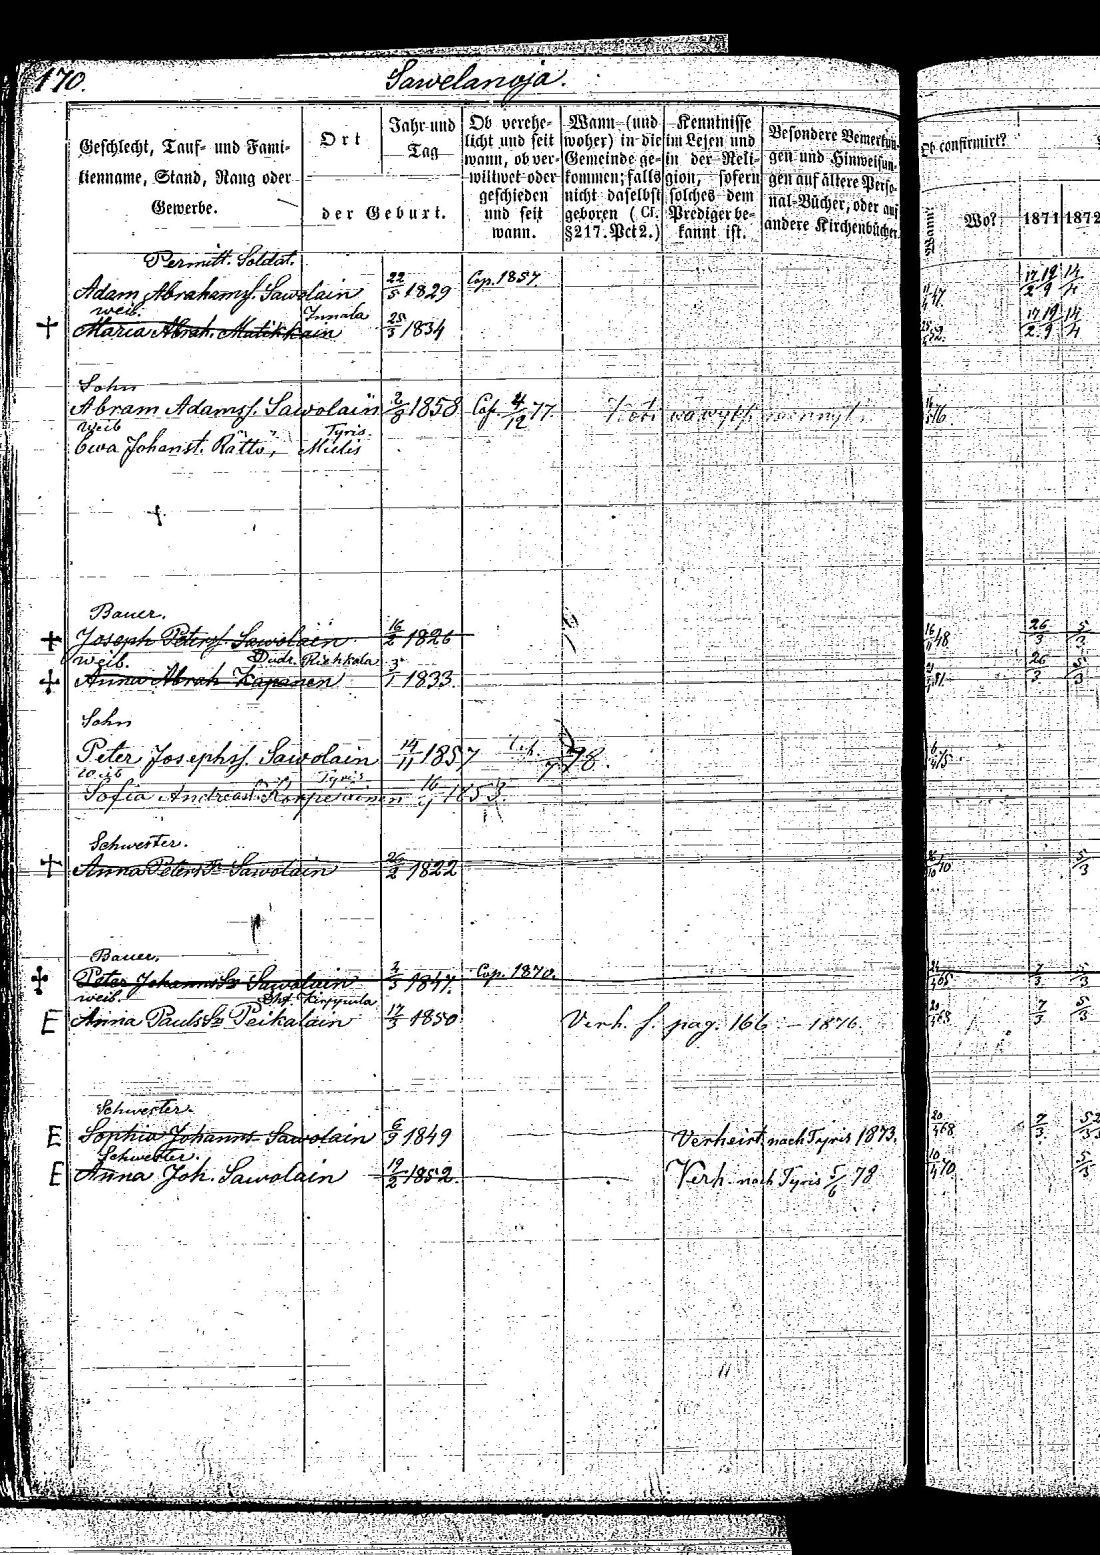 170.
Sawelanoja.
Geschlecht, Tauf- und Fami-
lienname, Stand, Rang oder
Gewerbe.
Ort
der Geburt.
Jahr und
Tag
Ob verehe-
licht und seit
wann, ob ver-
wittwet oder
geschieden
und seit
wann.
Wann (und
woher) in die
Gemeinde ge-
kommen; falls
nicht daselbst
geboren (Cf.
§ 217. Pct 2.)
Kenntnisse
im Lesen und
in der Reli-
gion, sofern
solches dem
Prediger be-
kannt ist.
Besondere Bemerkun-
gen und Hinweisun-
gen auf ältere Perso-
nal-Bücher, oder auf
andere Kirchenbücher.
Ob confirmirt?
Wann?
Wo?
1871
1872
Permitt. Soldat.
Adam Abrahamsf. Sawolain 22/5 1829 Cop. 1857. 47. 17/2 19/9 14/4
weib. Innala
Maria Abrah. Matikkain 25/3 1834 52. 17/2 19/9 14/4
Sohn
Abram Adamsf. Sawolain 1858 Cop. 4/12 77. 76.
weib Tyris.
Ewa Johanst. Rättö, Mielis
Bauer.
Joseph Petersf. Sawolain 16/2 1826 48 26/3 5/3
weib. Dudr. Riehkala
Anna Abrah Kaponen 3/1 1833. 51. 26/3 5/3
Sohn
Peter Josephsf. Sawolain 14/11 1857 78. 75.
weib Tyris
Sofia Andreast. 16 1853.
Schwester.
Anna Peters Tr Sawolain 26/2 1822 40 5/3
Bauer.
Peter Johanns Sawolain 1847. Cop. 1870. 65 7/3 5/3
weib. Kirppula
Anna Pauls Peikalain 17/3 1850 Verh. f. pag. 166 - 1876. 68 7/3 5/3
E
Schwester
E Sophia Johanns Sawolain 6/9 1849 Verheirt. nach Tyris 1873. 20/4 68 7/3
Schwester.
E Anna Joh. Sawolain 19/2 1852. Verh. nach Tyris 5/6 78 10/4 70 5/3